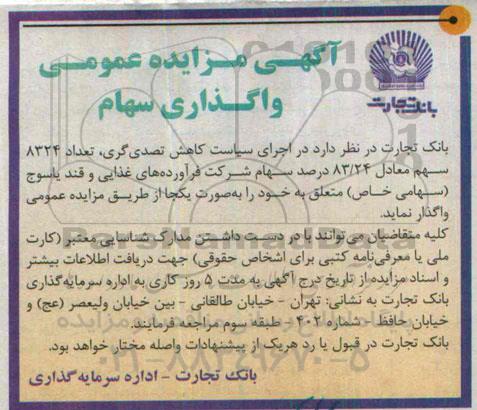 آگهی مزایده عمومی
واگذاری سهام
بانک تجارت
بانک تجارت در نظر دارد در اجرای سیاست کاهش تصدی‌گری، تعداد ۸۳۲۴
سهم معادل ۸۳/۲۴ درصد سهام شرکت فرآورده‌های غذایی و قند یاسوج
(سهامی خاص) متعلق به خود را به‌صورت یکجا از طریق مزایده عمومی
واگذار نماید.
کلیه متقاضیان می‌توانند با در دست داشتن مدارک شناسایی معتبر (کارت
ملی یا معرفی‌نامه کتبی برای اشخاص حقوقی) جهت دریافت اطلاعات بیشتر
و اسناد مزایده از تاریخ درج آگهی به مدت ۵ روز کاری به اداره سرمایه‌گذاری
بانک تجارت به نشانی: تهران - خیابان طالقانی - بین خیابان ولیعصر (عج) و
خیابان حافظ - شماره ۴۰۲ - طبقه سوم مراجعه فرمایند.
بانک تجارت در قبول یا رد هریک از پیشنهادات واصله مختار خواهد بود.
بانک تجارت - اداره سرمایه‌گذاری
۰۲۱-۸۸۳۴۹۶۷۰-۵